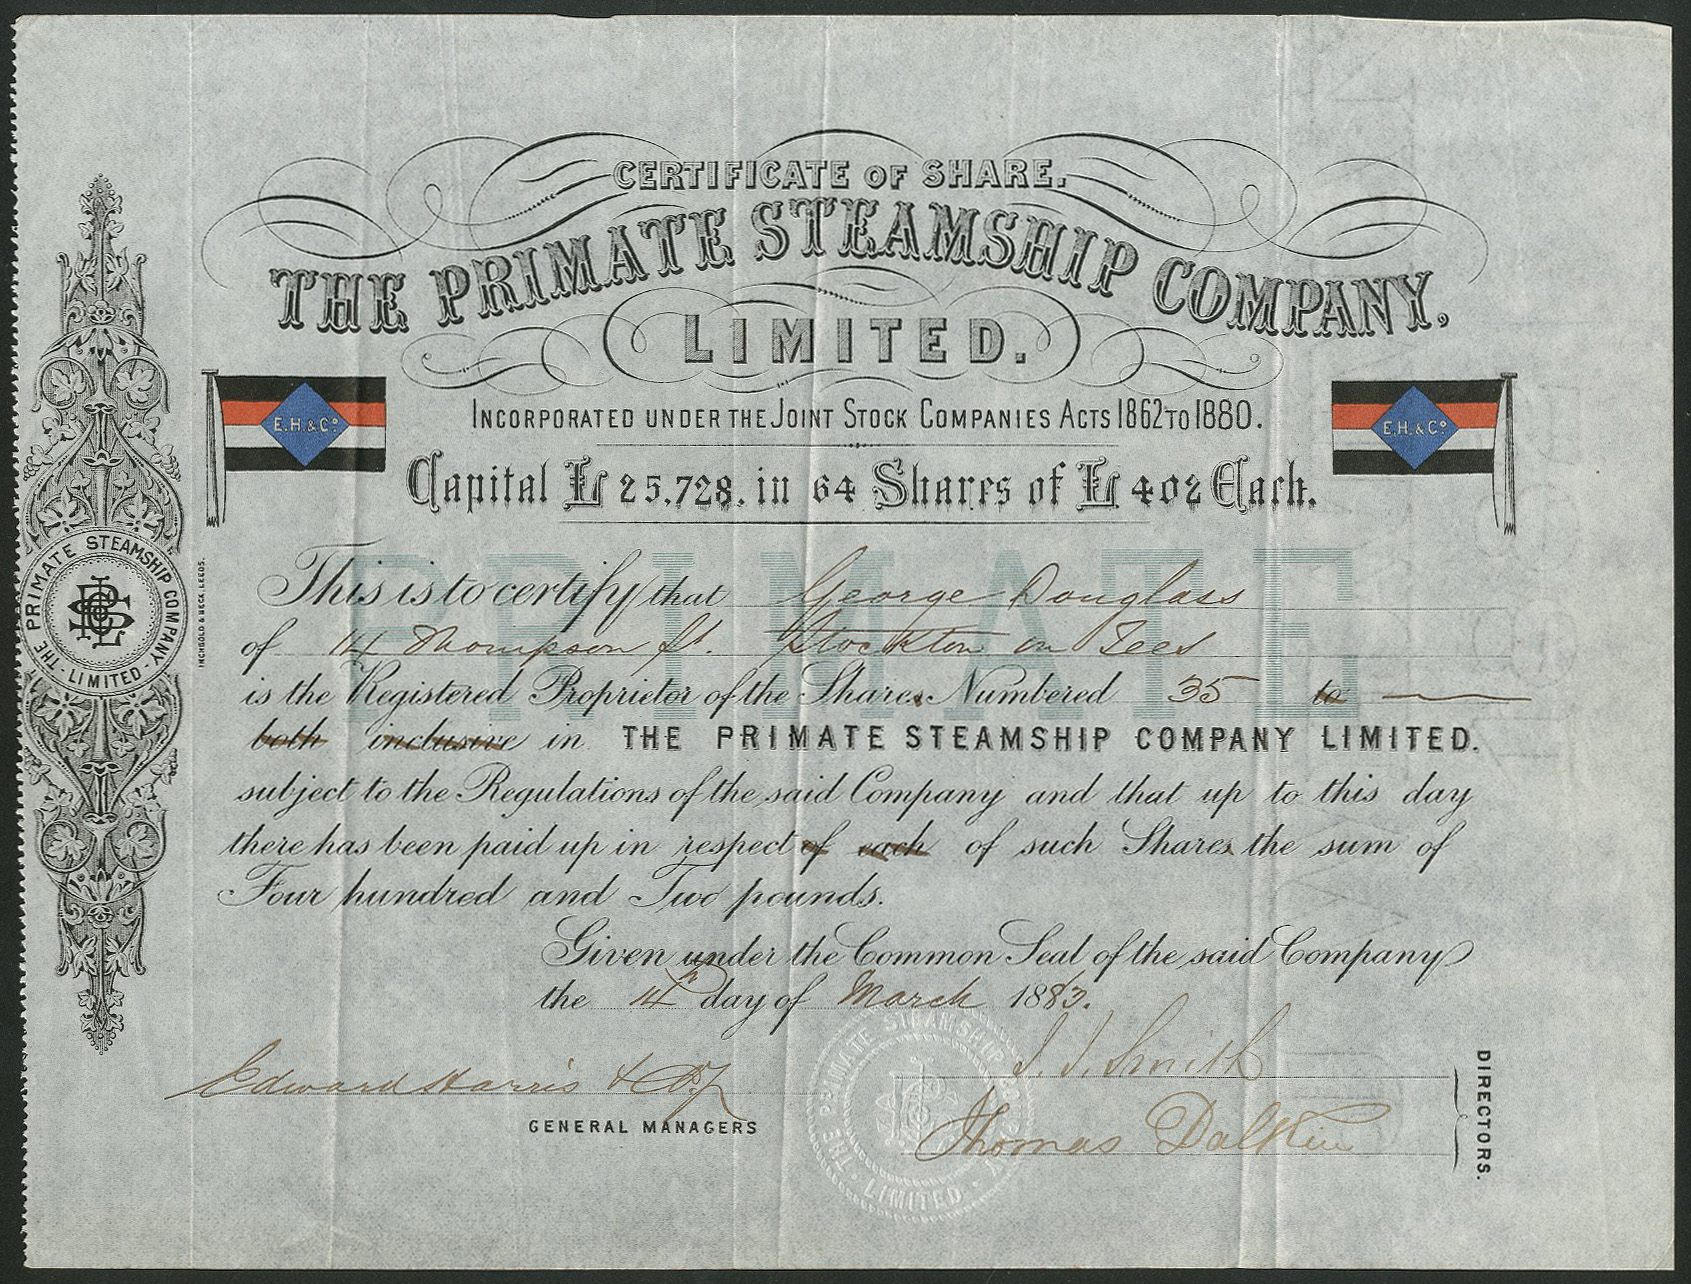 CERTIFICATE OF SHARE.
THE PRIMATE STEAMSHIP COMPANY,
LIMITED.
E.H.&Cº
E.H.&Cº
INCORPORATED UNDER THE JOINT STOCK COMPANIES ACTS 1862 TO 1880.
Capital £25,728. in 64 Shares of £402 Each.
PRIMATE
This is to certify that George Douglass
of 14 Thompson St. Stockton on Tees
is the Registered Proprietor of the Shares Numbered 35 to
both inclusive in THE PRIMATE STEAMSHIP COMPANY LIMITED.
subject to the Regulations of the said Company and that up to this day
there has been paid up in respect of each of such Shares the sum of
Four hundred and Two pounds.
Given under the Common Seal of the said Company
the 14th day of March 1883.
Edward Harris & Coy
GENERAL MANAGERS
J. J. Smith
Thomas Dalkin
DIRECTORS.
THE PRIMATE STEAMSHIP COMPANY LIMITED
THE PRIMATE STEAMSHIP COMPANY · LIMITED ·
INCHBOLD & BECK, LEEDS.